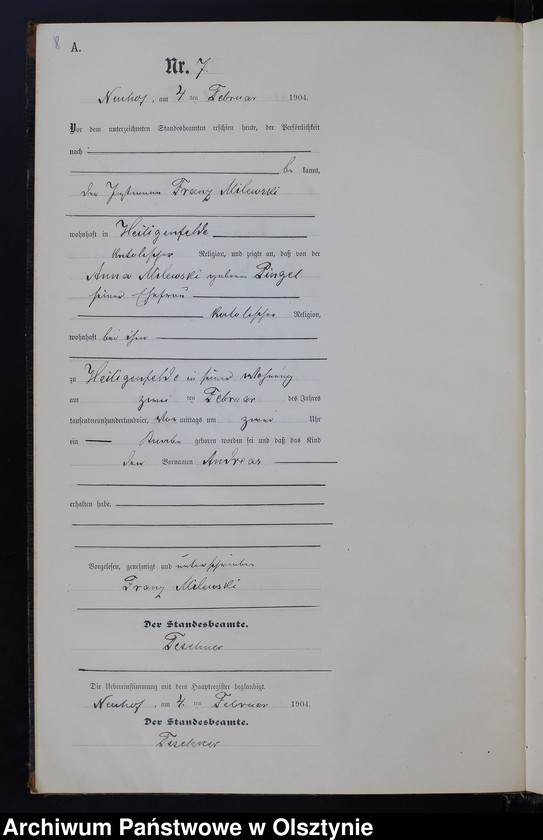 8 A.
Nr. 7.
Neuhof, am 4. ten Februar 1904.
Vor dem unterzeichneten Standesbeamten erschien heute, der Persönlichkeit
nach
be kannt,
der Instmann Franz Milewski
wohnhaft in Heiligenfelde
katolischer Religion, und zeigte an, daß von der
Anna Milewski geboren Pingel
seiner Ehefrau
katolischer Religion,
wohnhaft bei ihm
zu Heiligenfelde in seiner Wohnung
am zwei ten Februar des Jahres
tausendneunhundertundvier, Vor mittags um zwei Uhr
ein Knabe geboren worden sei und daß das Kind
den Vornamen Andreas
erhalten habe.
Vorgelesen, genehmigt und unterschrieben
Franz Milewski
Der Standesbeamte.
Teschner
Die Uebereinstimmung mit dem Hauptregister beglaubigt.
Neuhof, am 4. ten Februar 1904.
Der Standesbeamte.
Teschner
Archiwum Państwowe w Olsztynie